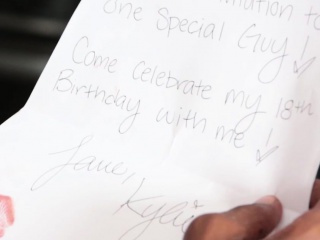 invitation to
One Special Guy!
Come celebrate my 18th
Birthday with me!
Love,
Kylie